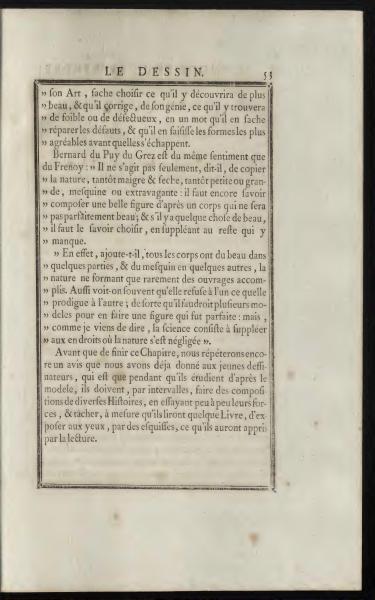 LE DESSIN. 53
„ son Art, sache choisir ce qu'il y découvrira de plus
„ beau, & qu'il corrige, de son génie, ce qu'il y trouvera
„ de foible ou de défectueux, en un mot qu'il en sache
„ réparer les défauts, & qu'il en saisisse les formes les plus
„ agréables avant quelles s'échappent.
Bernard du Puy du Grez est du même sentiment que
du Frenoy : „ Il ne s'agit pas seulement, dit-il, de copier
„ la nature, tantôt maigre & seche, tantôt petite ou gran-
„ de, mesquine ou extravagante : il faut encore savoir
„ composer une belle figure d'après un corps qui ne sera
„ pas parfaitement beau ; & s'il y a quelque chose de beau,
„ il faut le savoir choisir, en suppléant au reste qui y
„ manque.
„ En effet, ajoute-t-il, tous les corps ont du beau dans
„ quelques parties, & du mesquin en quelques autres, la
„ nature ne formant que rarement des ouvrages accom-
„ plis. Aussi voit-on souvent qu'elle refuse à l'un ce quelle
„ prodigue à l'autre ; de sorte qu'il faudroit plusieurs mo-
„ deles pour en faire une figure qui fut parfaite : mais,
„ comme je viens de dire, la science consiste à suppléer
„ aux endroits où la nature s'est négligée „.
Avant que de finir ce Chapitre, nous répéterons enco-
re un avis que nous avons déja donné aux jeunes dessi-
nateurs, qui est que pendant qu'ils étudient d'après le
modele, ils doivent, par intervalles, faire des composi-
tions de diverses Histoires, en essayant peu à peu leurs for-
ces, & tâcher, à mesure qu'ils liront quelque Livre, d'ex-
poser aux yeux, par des esquisses, ce qu'ils auront appris
par la lecture.